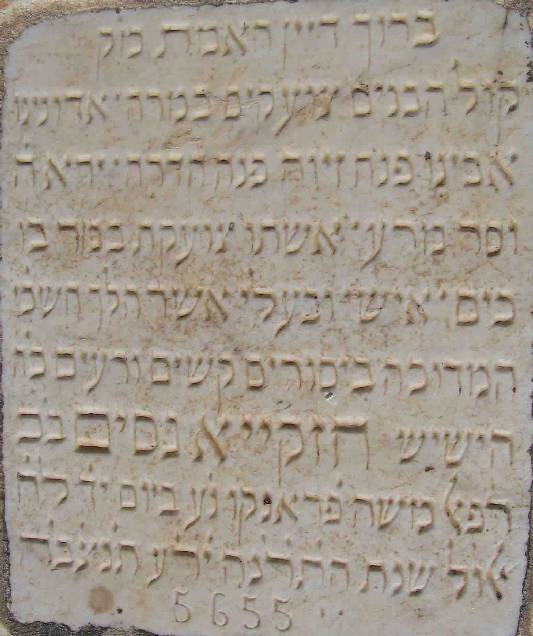 ברוך דיין האמת מק
קול הבנים צועקים במרה אדונינו
אבינו פנת זיוה פנה הדרה יראה
וסר מרע אשתו צועקת במר בו
כים אישי ובעלי אשר הלך חשכי
המדוכה ביסורים קשים ורעים כה
הישיש חזקייא נסים בכ
משה פריאנקו נע ביום יד לח
שנת התרנה ירע תנצבה
5655